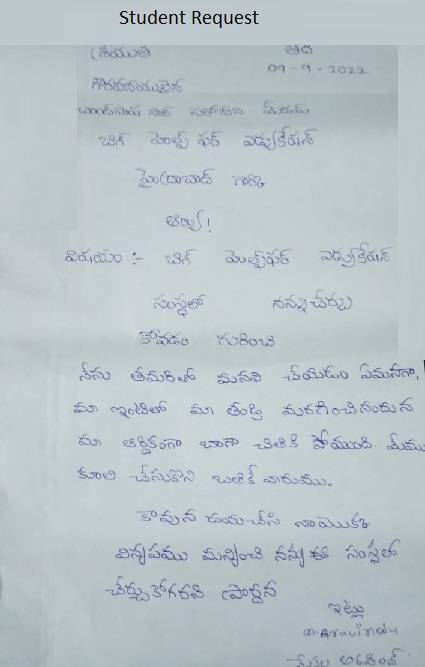 Student Request
శ్రీయుత తేది
09-9-2022
గౌరవనీయులైన
చాంద్‌పాషా సార్ మేడమ్
బిగ్ హెల్ప్ ఫర్ ఎడ్యుకేషన్
హైదరాబాద్ గారికి
ఆర్యా!
విషయం :- బిగ్ హెల్ప్‌ఫర్ ఎడ్యుకేషన్
సంస్థలో నన్ను చేర్చు
కోవడం గురించి
నేను తమరితో మనవి చేయడం ఏమనగా,
మా ఇంటిలో మా తండ్రి మరణించినందున
మా ఆర్దికంగా బాగా చితికి పోయింది మేము
కూలి చేసుకొని బతికే వారుము.
కావున దయచేసి నాయొక్క
విన్నపము మన్నించి నన్ను ఈ సంస్థలో
చేర్చుకోగరని ప్రార్ధన
ఇట్లు
m. Aravindu
అరవింద్